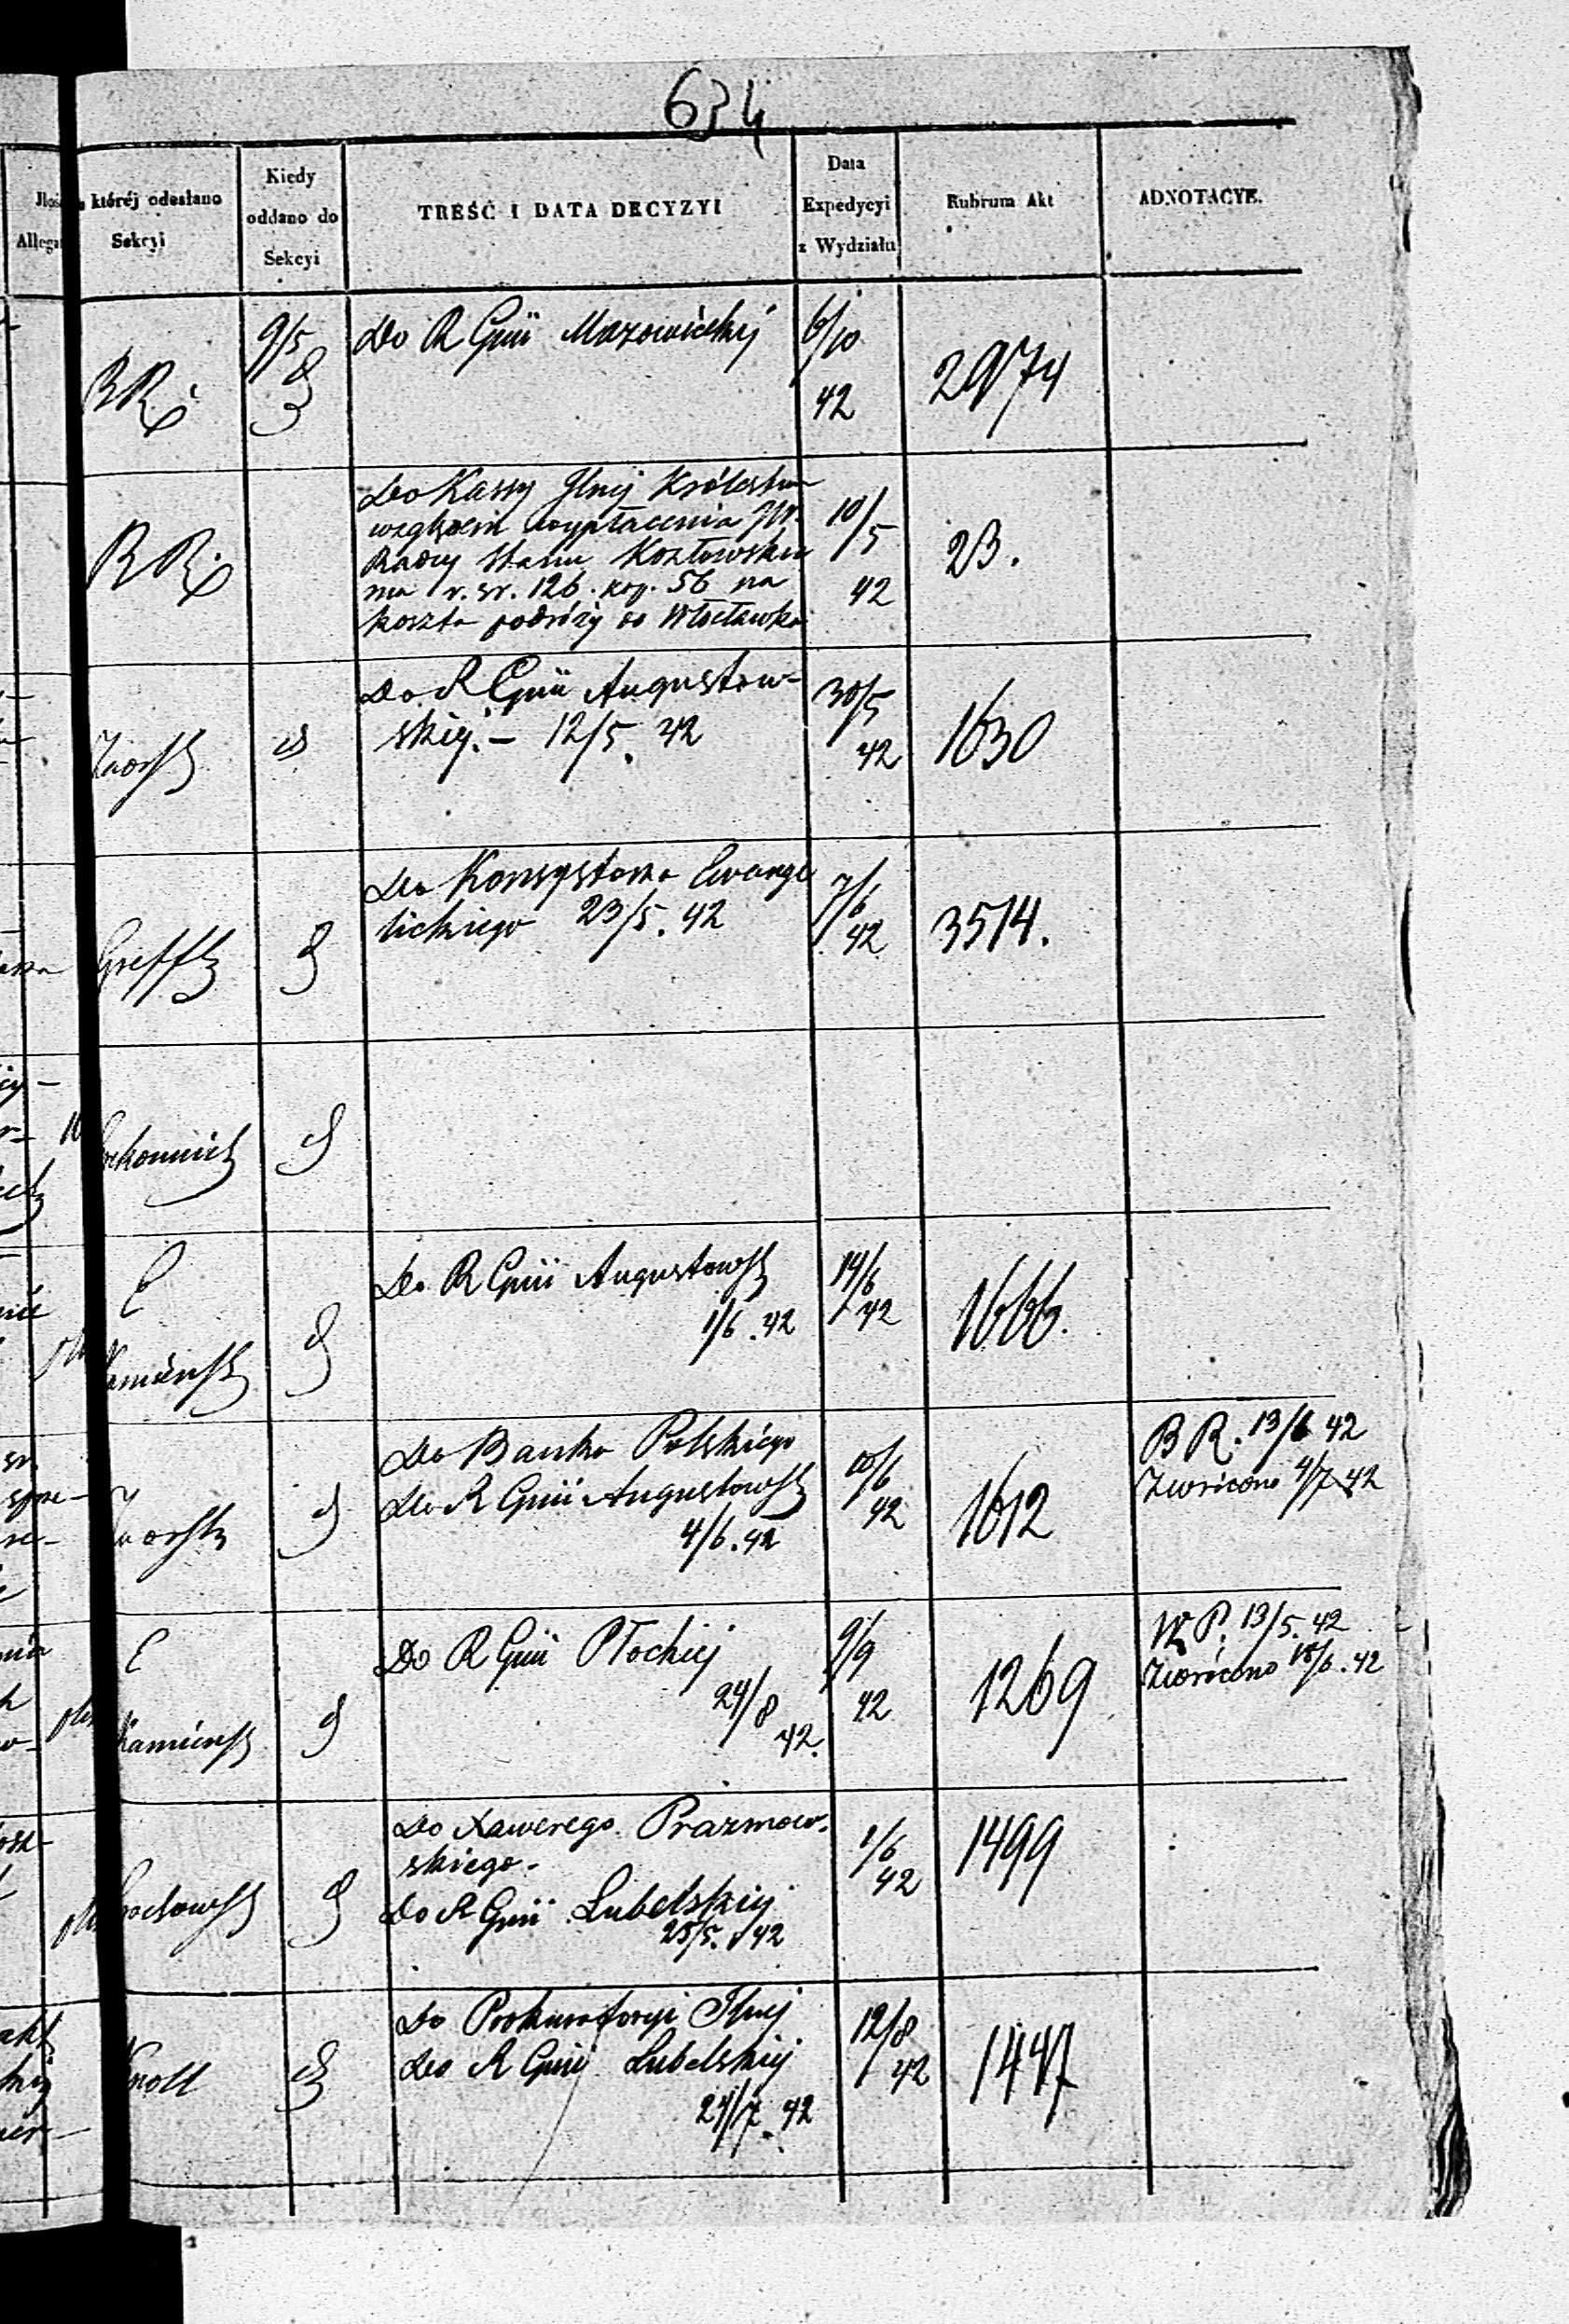 634
któréj odesłano
Sekcyi
Kiedy
oddano do
Sekcyi
TREŚĆ I DATA DECYZYI
Data
Expedycyi
z Wydziału
Rubrum Akt
ADNOTACYE.
9/5
Do R Gnii Mazowieckiej
6/10
42
2974
Do Kassy Głnej Królestwa
względem wypłacenia JW.
Radcy Stanu Kozłowskie
mu r. sr. 126. kop. 56 na
koszta podróży do Włocławka
10/5
42
23.
Do R Gnii Augustow-
skiej. - 12/5. 42
30/5
42
1630
Do Konsystorza Ewange
lickiego 23/5. 42
7/6
42
3514.
E
Do R Gnii Augustowsk
1/6. 42
14/6
42
1666.
Kamieńsk
Do Banku Polskiego
Do R Gnii Augustowsk
4/6. 42
10/6
42
1612
B R. 13/6 42
Zwrócono 4/7 42
E
Kamieńsk
Do R Gnii Płockiej
24/8
42.
9/9
42
1269
W P. 13/5. 42
Zwrócono 15/6. 42
Do Xawerego Prazmow-
skiego-
Do R Gnii Lubelskiej
25/5. 42
1/6
42
1499
Knoll
Do Prokuratoryi Głnej
Do R Gnii Lubelskiej
24/7. 42
12/8
42
1447